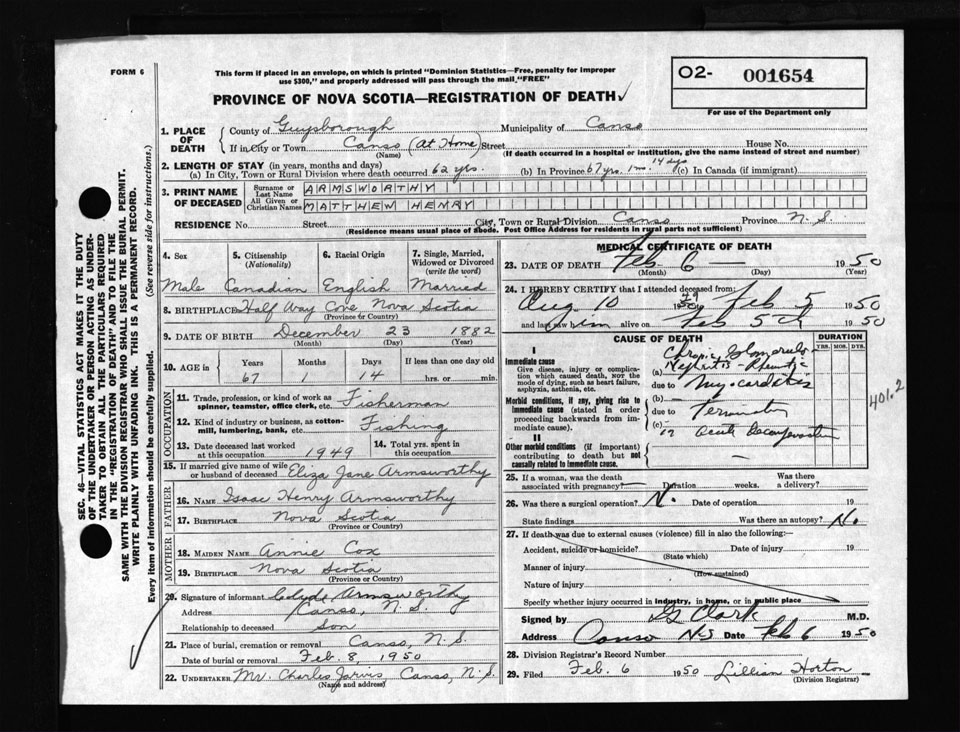 FORM 6
This form if placed in an envelope, on which is printed "Dominion Statistics—Free, penalty for improper
use $300," and properly addressed will pass through the mail "FREE"
O2- 001654
For use of the Department only
PROVINCE OF NOVA SCOTIA—REGISTRATION OF DEATH ✓
1. PLACE OF DEATH { County of Guysborough Municipality of Canso
If in City or Town Canso (At Home) Street House No.
(Name) (If death occurred in a hospital or institution, give the name instead of street and number)
2. LENGTH OF STAY (in years, months and days)
(a) In City, Town or Rural Division where death occurred 62 yrs. (b) In Province 67 yrs. 1 mo. 14 dys (c) In Canada (if immigrant)
3. PRINT NAME OF DECEASED { Surname or Last Name ARMSWORTHY
All Given or Christian Names MATTHEW HENRY
RESIDENCE No. Street City, Town or Rural Division Canso Province N. S.
(Residence means usual place of abode. Post Office Address for residents in rural parts not sufficient)
4. Sex 5. Citizenship (Nationality) 6. Racial Origin 7. Single, Married, Widowed or Divorced (write the word)
Male Canadian English Married
8. BIRTHPLACE Half Way Cove Nova Scotia
(Province or Country)
9. DATE OF BIRTH December 23 1882
(Month) (Day) (Year)
10. AGE in { Years Months Days If less than one day old
67 1 14 hrs. or min.
OCCUPATION
11. Trade, profession, or kind of work as spinner, teamster, office clerk, etc. Fisherman
12. Kind of industry or business, as cotton-mill, lumbering, bank, etc. Fishing
13. Date deceased last worked at this occupation 1949 14. Total yrs. spent in this occupation
15. If married give name of wife or husband of deceased Eliza Jane Armsworthy
FATHER
16. NAME Isaac Henry Armsworthy
17. BIRTHPLACE Nova Scotia
(Province or Country)
MOTHER
18. MAIDEN NAME Annie Cox
19. BIRTHPLACE Nova Scotia
(Province or Country)
20. Signature of informant Clyde Armsworthy
Address Canso, N. S.
Relationship to deceased Son
21. Place of burial, cremation or removal Canso, N. S.
Date of burial or removal Feb. 8, 1950
22. UNDERTAKER Mr. Charles Jarvis Canso, N. S.
(Name and address)
MEDICAL CERTIFICATE OF DEATH
23. DATE OF DEATH Feb 6 — 1950
(Month) (Day) (Year)
24. I HEREBY CERTIFY that I attended deceased from:
Aug 10 49 Feb 5 1950
and last saw him alive on Feb 5th 1950
CAUSE OF DEATH DURATION
YRS. MOS. DYS.
I
Immediate cause
Give disease, injury or complication which caused death, NOT the mode of dying, such as heart failure, asphyxia, asthenia, etc.
(a) Chronic Glomerulo Nephritis
due to Myocarditis
Morbid conditions, if any, giving rise to immediate cause (stated in order proceeding backwards from immediate cause).
(b)
due to
(c) Acute
II
Other morbid conditions (if important) contributing to death but not causally related to immediate cause.
401.2
25. If a woman, was the death associated with pregnancy? Duration weeks. Was there a delivery?
26. Was there a surgical operation? No Date of operation 19
State findings Was there an autopsy? No
27. If death was due to external causes (violence) fill in also the following:
Accident, suicide or homicide? Date of injury 19
(State which)
Manner of injury
(How sustained)
Nature of injury
Specify whether injury occurred in industry, in home, or in public place
Signed by Clark M.D.
Address Canso N-S Date Feb 6 1950
28. Division Registrar's Record Number
29. Filed Feb. 6 1950 Lillian Horton
(Division Registrar)
SEC. 46—VITAL STATISTICS ACT MAKES IT THE DUTY
OF THE UNDERTAKER OR PERSON ACTING AS UNDER-
TAKER TO OBTAIN ALL THE PARTICULARS REQUIRED
IN THE "REGISTRATION OF DEATH" AND TO FILE THE
SAME WITH THE DIVISION REGISTRAR WHO SHALL ISSUE THE BURIAL PERMIT.
WRITE PLAINLY WITH UNFADING INK. THIS IS A PERMANENT RECORD.
Every item of information should be carefully supplied. (See reverse side for instructions.)